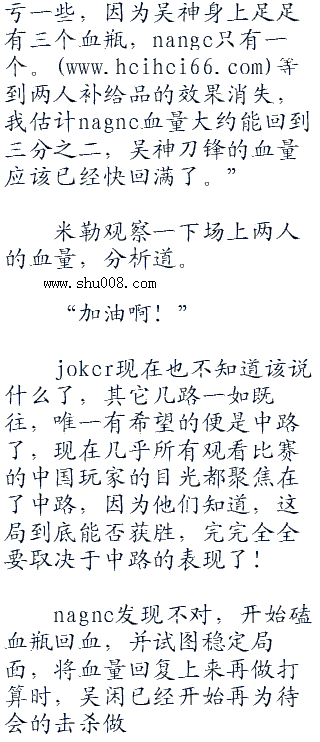 亏一些，因为吴神身上足足
有三个血瓶，nangc只有一
个。(www.hcihci66.com)等
到两人补给品的效果消失，
我估计nagnc血量大约能回到
三分之二，吴神刀锋的血量
应该已经快回满了。”
米勒观察一下场上两人
的血量，分析道。
www.shu008.com
“加油啊！”
jokcr现在也不知道该说
什么了，其它几路一如既
往，唯一有希望的便是中路
了，现在几乎所有观看比赛
的中国玩家的目光都聚焦在
了中路，因为他们知道，这
局到底能否获胜，完完全全
要取决于中路的表现了！
nagnc发现不对，开始磕
血瓶回血，并试图稳定局
面，将血量回复上来再做打
算时，吴闲已经开始再为待
会的击杀做